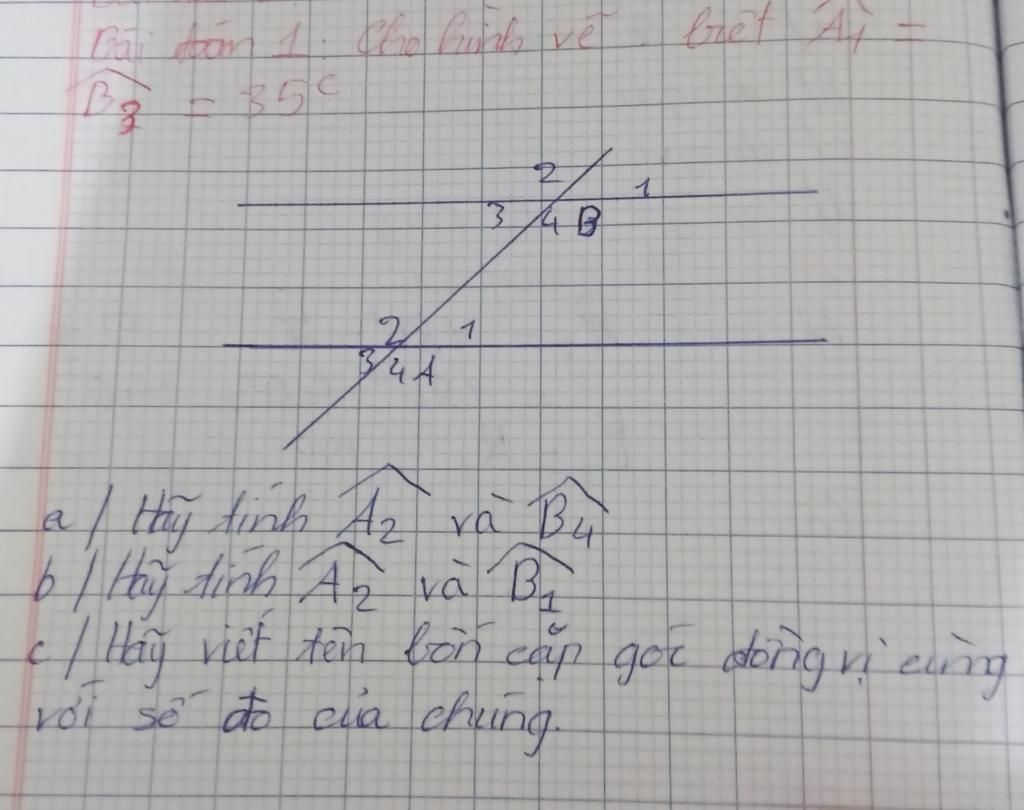 Bài toán 1. Cho hình vẽ. biết Â1 =
B3 = 35°
2
1
3
4 B
2
1
3
4 A
a / Hãy tính A2 và B4
b / Hãy tính A2 và B1
c / Hãy viết tên bốn cặp góc đồng vị cùng
với số đo của chúng.